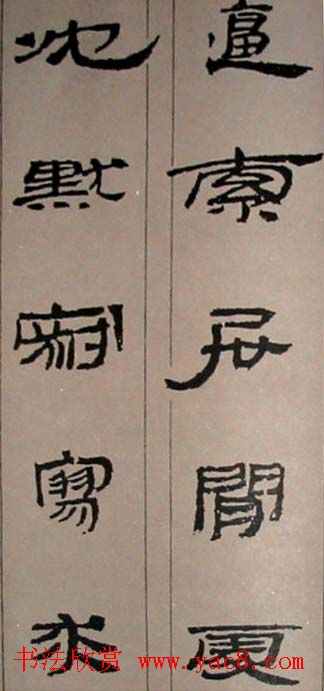 逼索居閒處
沈默寂寥求
书法欣赏 www.yac8.com